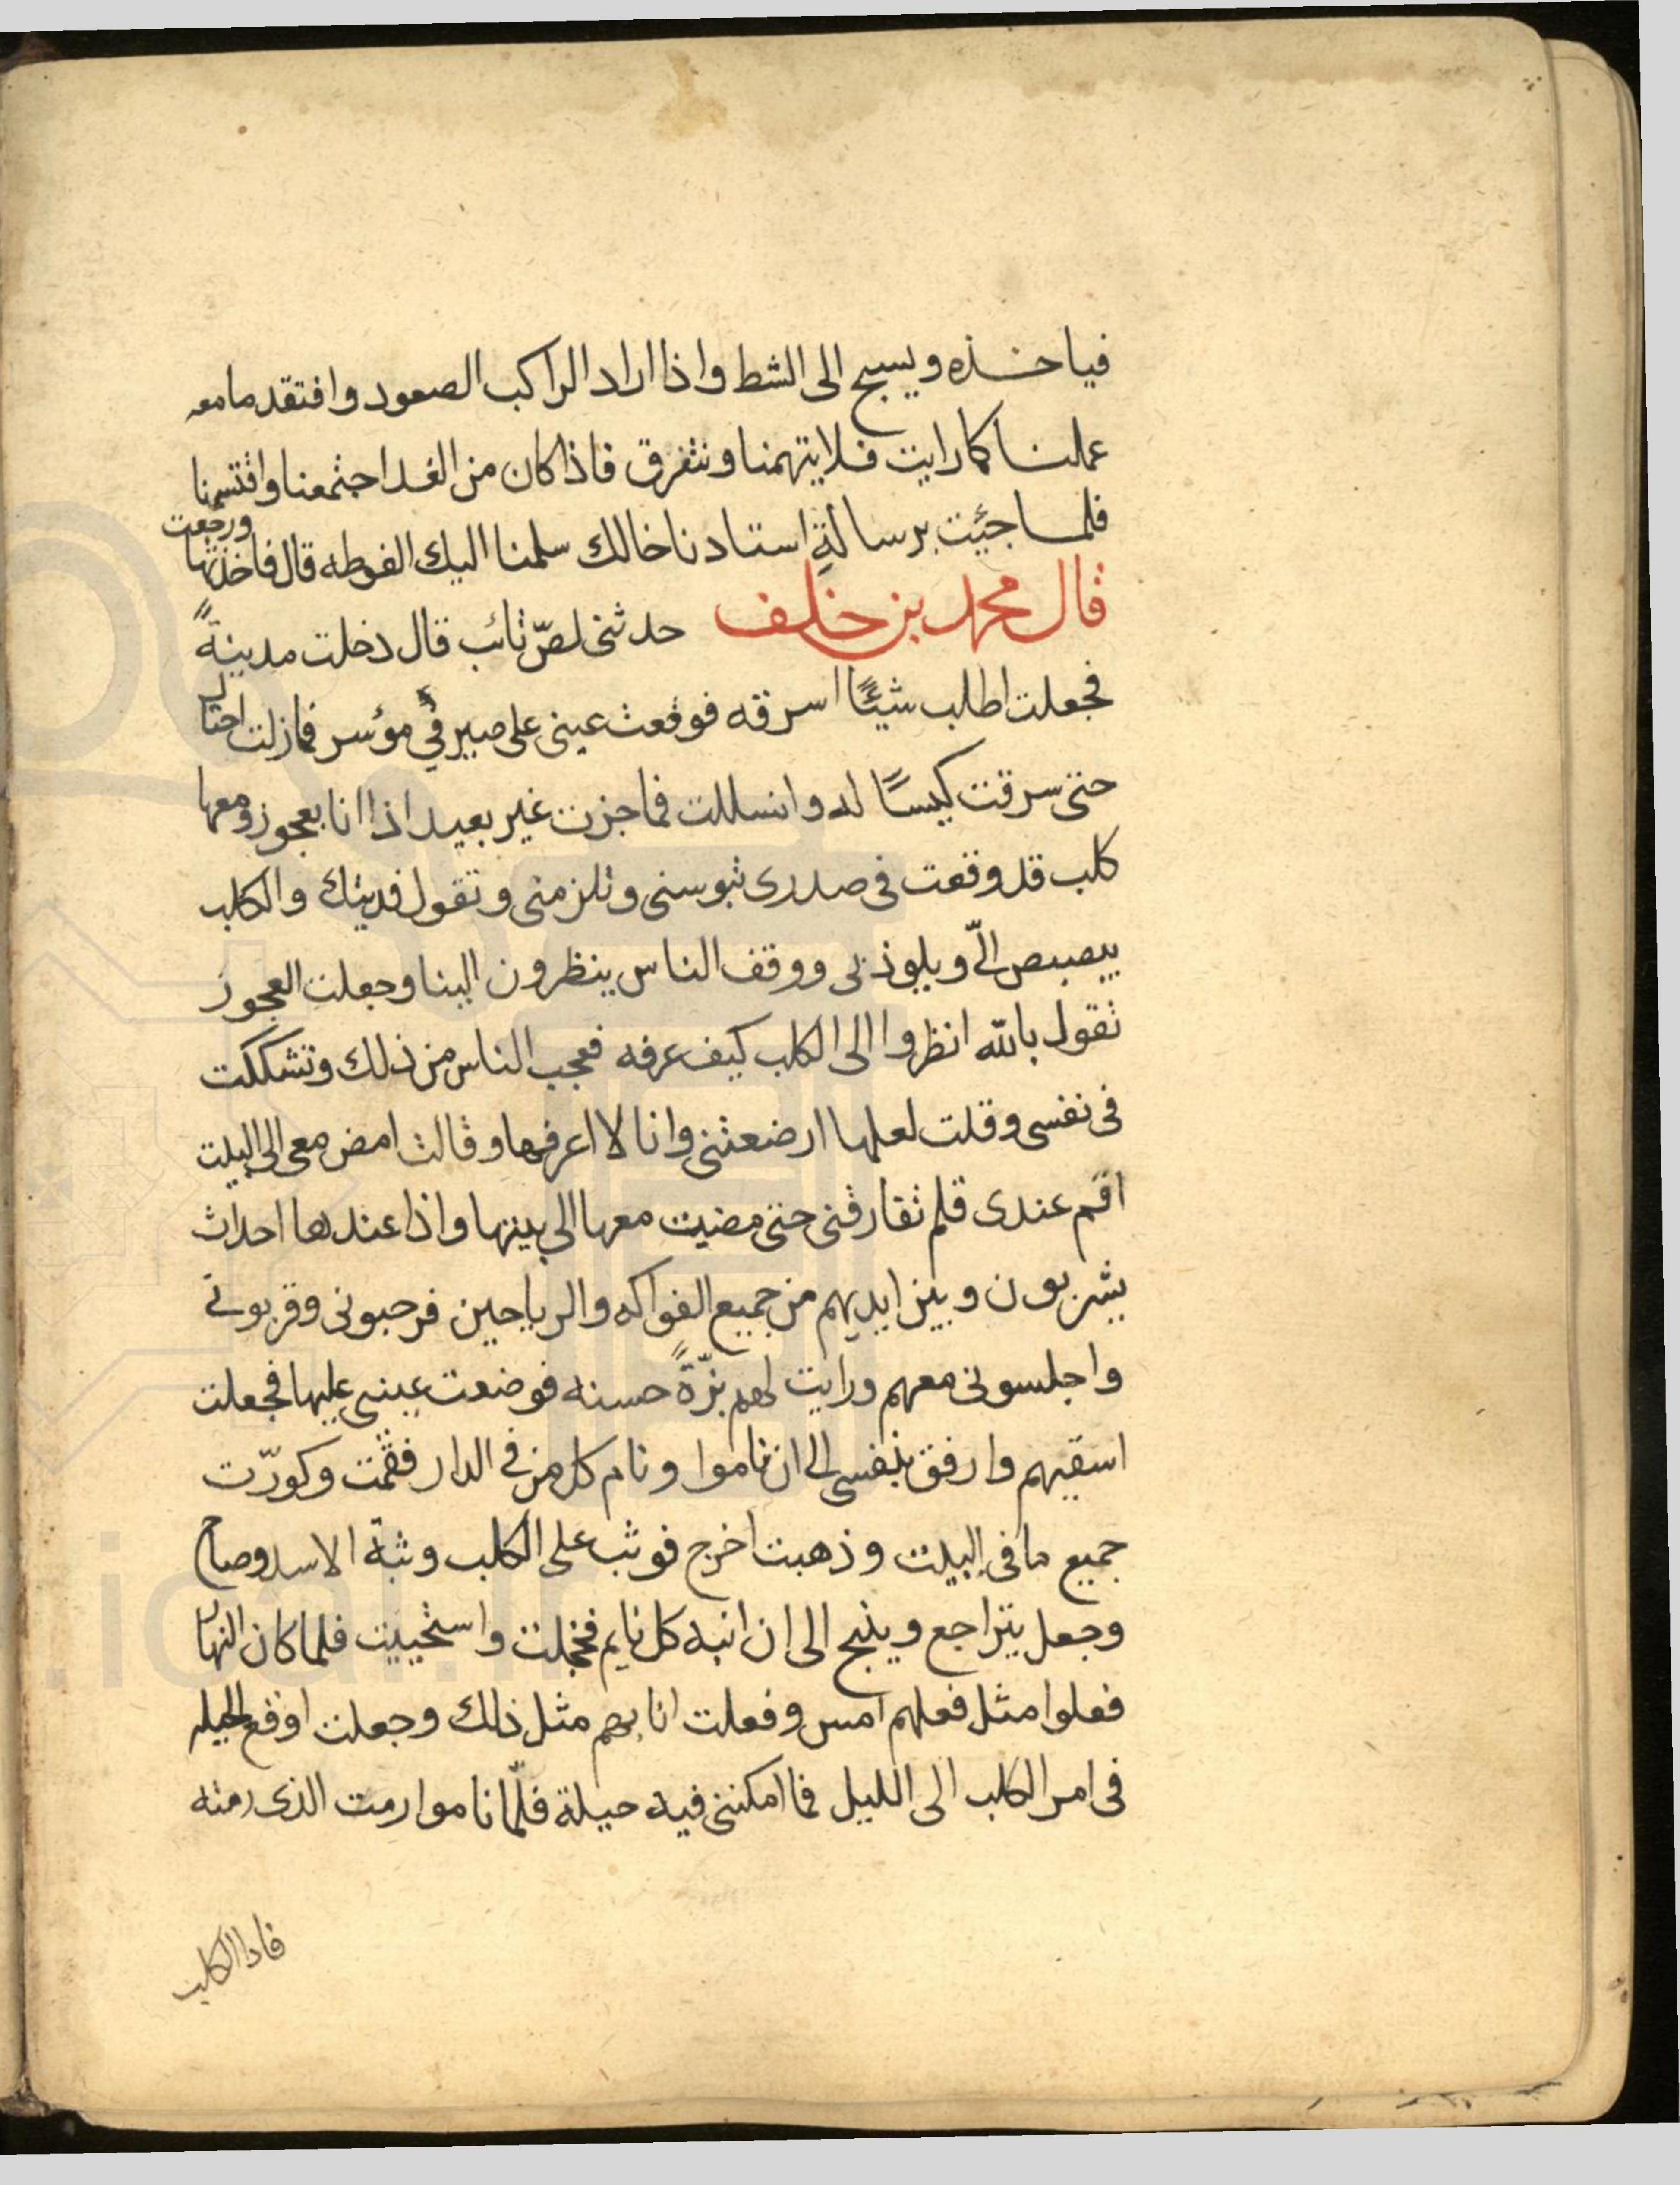 فياخذه ويسبح الى الشط واذا اراد الراكب الصعود وافتقد مامعه
عملنا كما رايت فلا يتهمنا ونتفرق فاذا كان من الغد اجتمعنا واقتسمنا
فلما جيئت برسالة استادنا خالك سلمنا اليك الفوطه قال فاخذتها ورجعت
قال محمد بن خلف حدثني لصّ تائب قال دخلت مدينةً
فجعلت اطلب شيئًا اسرقه فوقعت عيني على صيرفي مؤسر فمازلت احتال
حتى سرقت كيسًا له وانسللت فما جزت غير بعيد اذا انا بعجوز ومعها
كلب قد وقعت في صدري تبوسني وتلزمني وتقول فديتك والكلب
يبصبص الىّ ويلوذ بي ووقف الناس ينظرون الينا وجعلت العجوز
تقول بالله انظروا الى الكلب كيف عرفه فعجب الناس من ذلك وتشككت
في نفسي وقلت لعلها ارضعتني وانا لا اعرفها وقالت امض معي الى البيت
اقم عندي فلم تفارقني حتى مضيت معها الى بيتها واذا عندها احداث
يشربون وبين ايديهم من جميع الفواكه والرياحين فرحبوني وقربوني
واجلسوني معهم ورايت لهم بزّةً حسنه فوضعت عيني عليها فجعلت
اسقيهم وارفق بنفسي الى ان ناموا ونام كل من في الدار فقمت وكورّت
جميع ما في البيت وذهبت اخرج فوثب على الكلب وثبة الاسد وصاح
وجعل يتراجع وينبح الى ان انبه كل نايم فخجلت واستحييت فلما كان النهار
فعلوا مثل فعلهم امس وفعلت انا بهم مثل ذلك وجعلت اوقع الحيله
في امر الكلب الى الليل فما امكنني فيه حيلة فلمّا ناموا رمت الذي رمته
فاذا الكلب